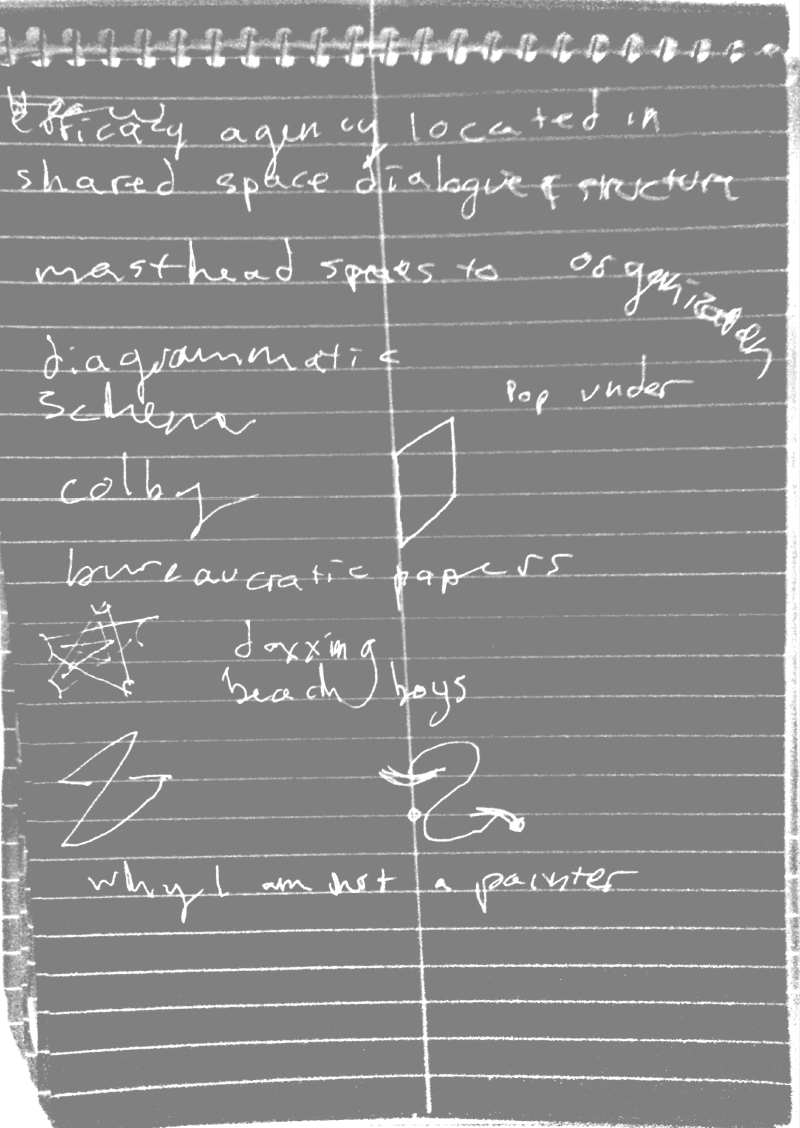 efficacy agency located in
shared space dialogue & structure
masthead speaks to organization
diagrammatic
schema
pop under
colby
bureaucratic papers
doxxing
beach boys
why I am not a painter